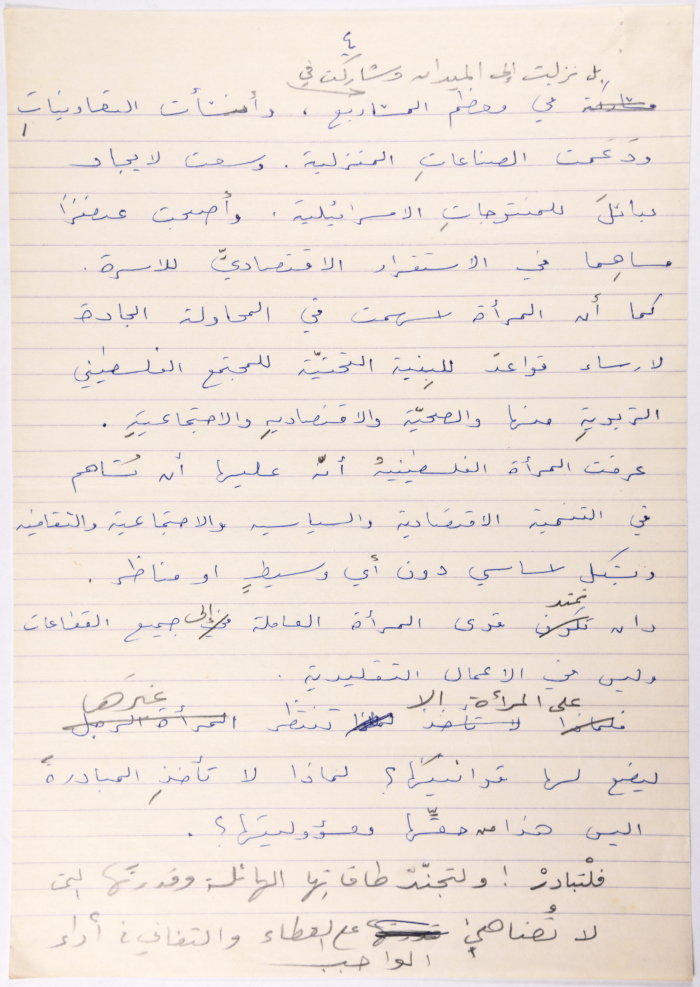 ٤
بل نزلت إلى الميدان وشاركت في
مشاركة في معظم المشاريع ، وأنشأت التعاونياتِ
ودَعَمت الصناعاتِ المنزلية . وسعت لايجاد
بدائلَ للمنتوجاتِ الاسرائيلية . وأصبحت عنصرًا
مساهِما في الاستقرار الاقتصاديّ للاسرة .
كما أن المرأة اسهمت في المحاولة الجادة
لارساء قواعدَ للبِنية التحتيّة للمجتمع الفلسطيني
التربويةِ منها والصحيّة والاقتصاديهِ والاجتماعيةِ .
عرفت المرأة الفلسطينيهُ أنّه عليها أن تُساهم
في التنمية الاقتصادية والسياسيه والاجتماعية والثقافيه
وبشكل اساسي دون أي وسيطٍ او مناظر .
تمتد
وان تكون قوى المرأة العاملة في إلى جميع القطاعات
وليس في الاعمال التقليدية .
على المرأة الا غيرَها
فلماذا لا تأخذ تنتظر المرأة الرجل
ليضع لها قوانينَها؟ لماذا لا تأخذِ المبادرةَ
اليس هذا من حقِّها ومسؤوليتها؟ .
فلْتبادرْ ! ولتجنّدْ طاقاتِها الهائلة وقدرتَها التي
لا تُضاهى قدرتها على العطاء والتفاني في أداء
الواجب